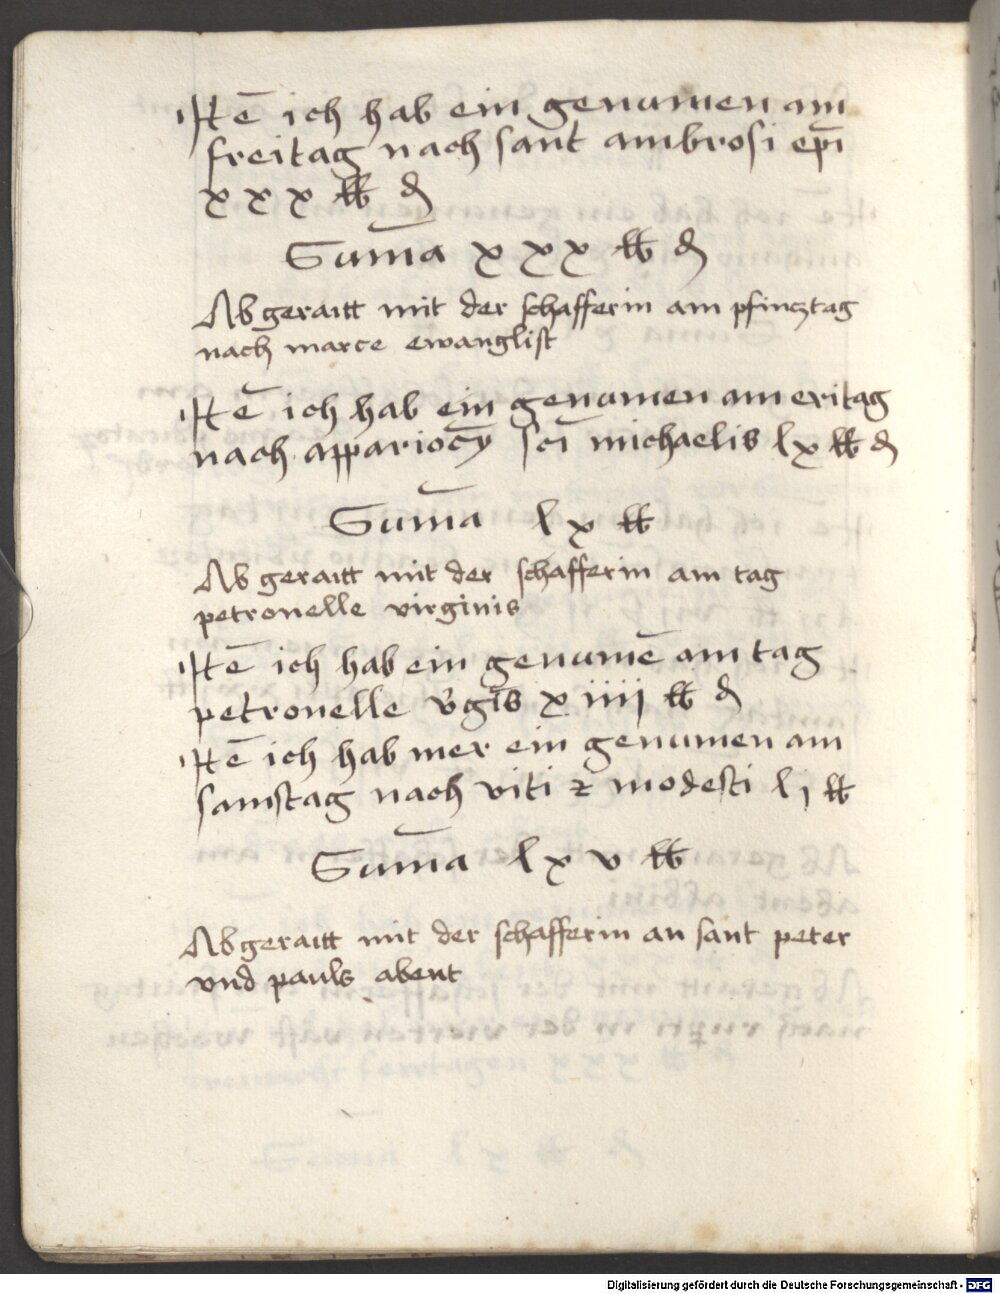 Itē ich hab ein genumen am
freitag nach sant ambrosi ep̄i
xxx ℔ ₰
Sum̄a xxx ℔ ₰
Ab geraitt mit der schafferin am pfincztag
nach marce ewanglist
Itē ich hab ein genumen am eritag
nach appariōcy sc̄i michaelis lx ℔ ₰
Sum̄a lx ℔
Ab geraitt mit der schafferin am tag
petronelle virginis
Itē ich hab ein genumē am tag
petronelle v̄gīs xiiij ℔ ₰
Itē ich hab mer ein genumen am
samstag nach viti ⁊ modesti lj ℔
Sum̄a lxv ℔
Ab geraitt mit der schafferin an sant peter
vnd pauls abent
Digitalisierung gefördert durch die Deutsche Forschungsgemeinschaft - DFG